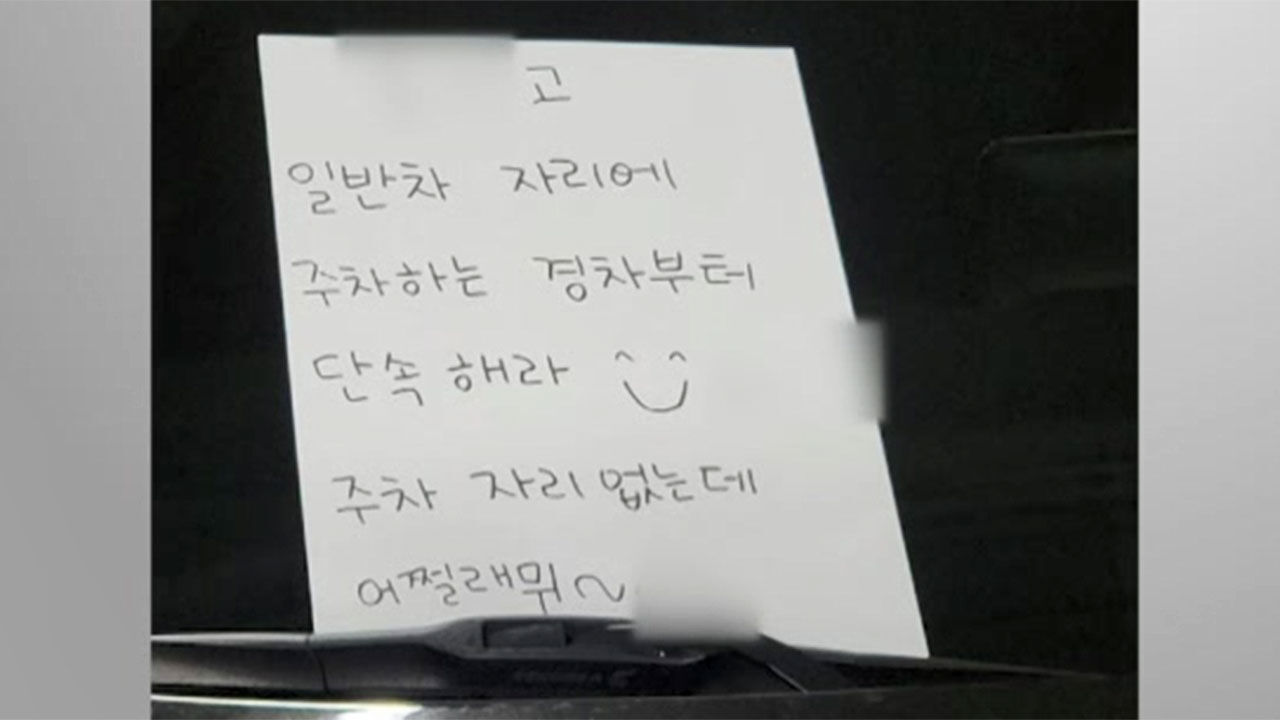 고
일반차 자리에
주차하는 경차부터
단속 해라 ^‿^
주차 자리 없는데
어쩔래뭐~